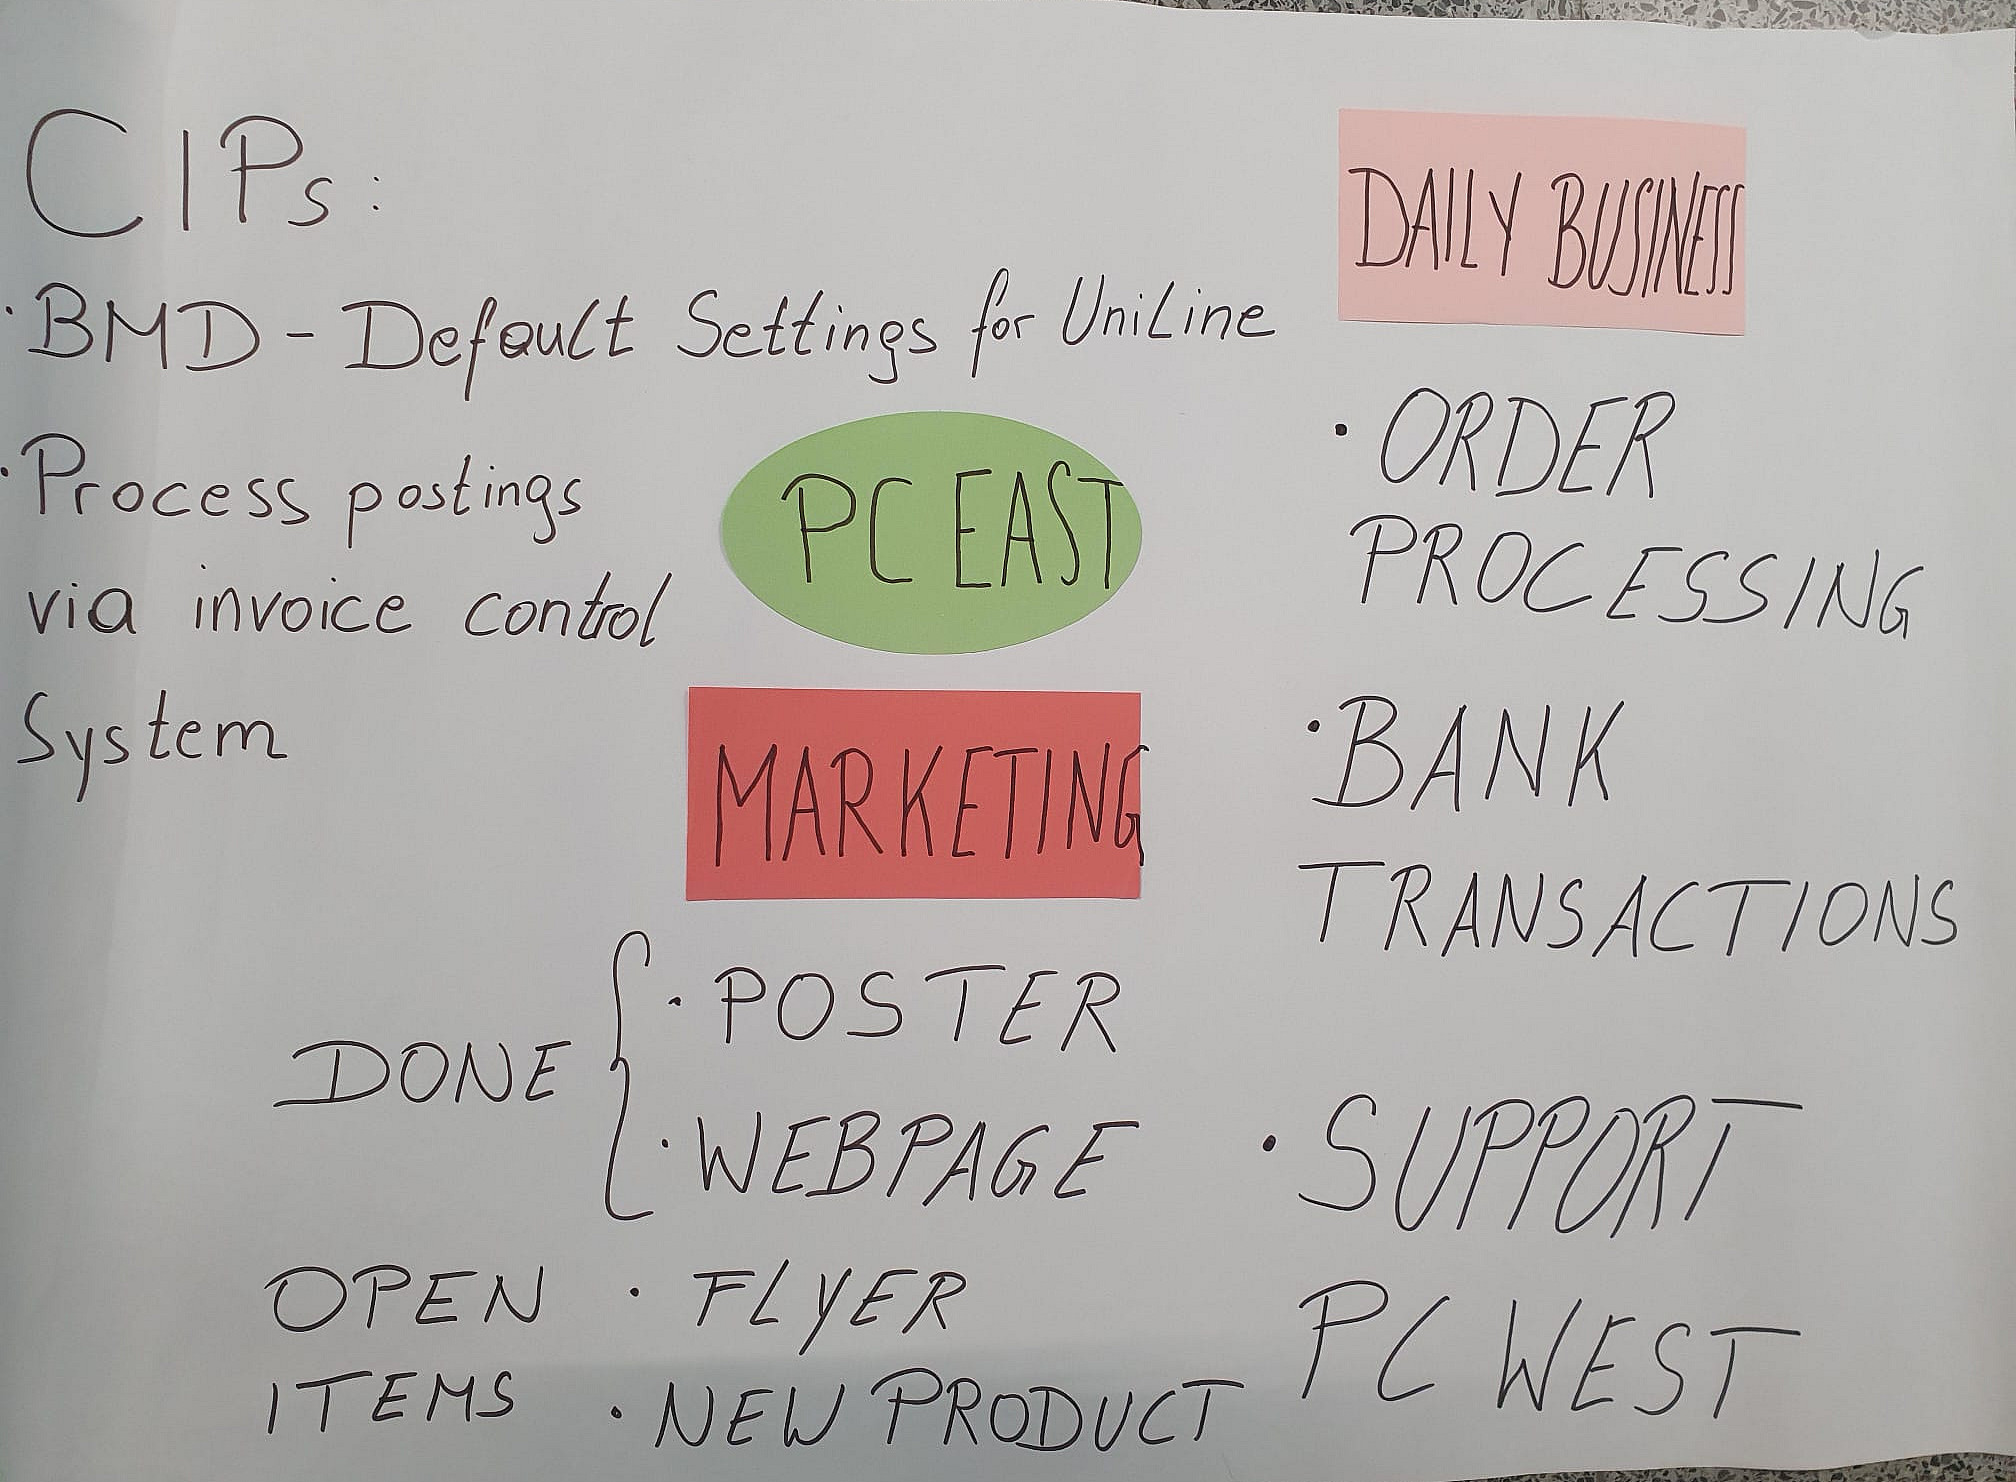 CIPs:
· BMD - Default Settings for UniLine
· Process postings
via invoice control
System
PC EAST
MARKETING
DONE { · POSTER
· WEBPAGE
OPEN · FLYER
ITEMS · NEW PRODUCT
DAILY BUSINESS
· ORDER
PROCESSING
· BANK
TRANSACTIONS
· SUPPORT
PC WEST